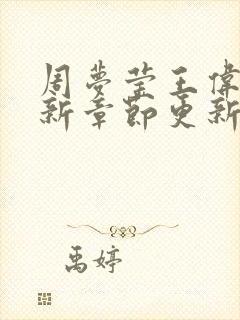 周夢莹王偉
新章節更新
禹婷